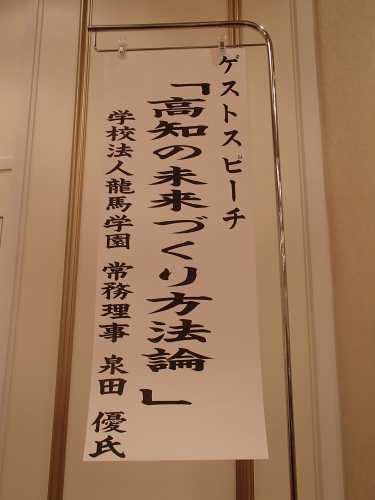 ゲストスピーチ
「高知の未来づくり方法論」
学校法人龍馬学園 常務理事 泉田 優氏